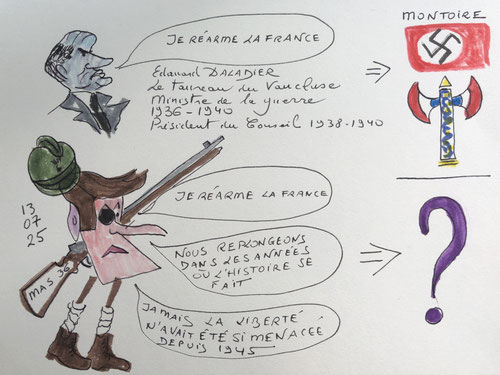 MONTOIRE
JE RÉARME LA FRANCE
Edouard DALADIER
Le taureau du Vaucluse
Ministre de la guerre
1936 - 1940
Président du Conseil 1938-1940
13
07
25
JE RÉARME LA FRANCE
NOUS REPLONGEONS
DANS LES ANNÉES
OÙ L'HISTOIRE SE
FAIT
MAS 36
JAMAIS LA LIBERTÉ
N'AVAIT ÉTÉ SI MENACÉE
DEPUIS 1945
?